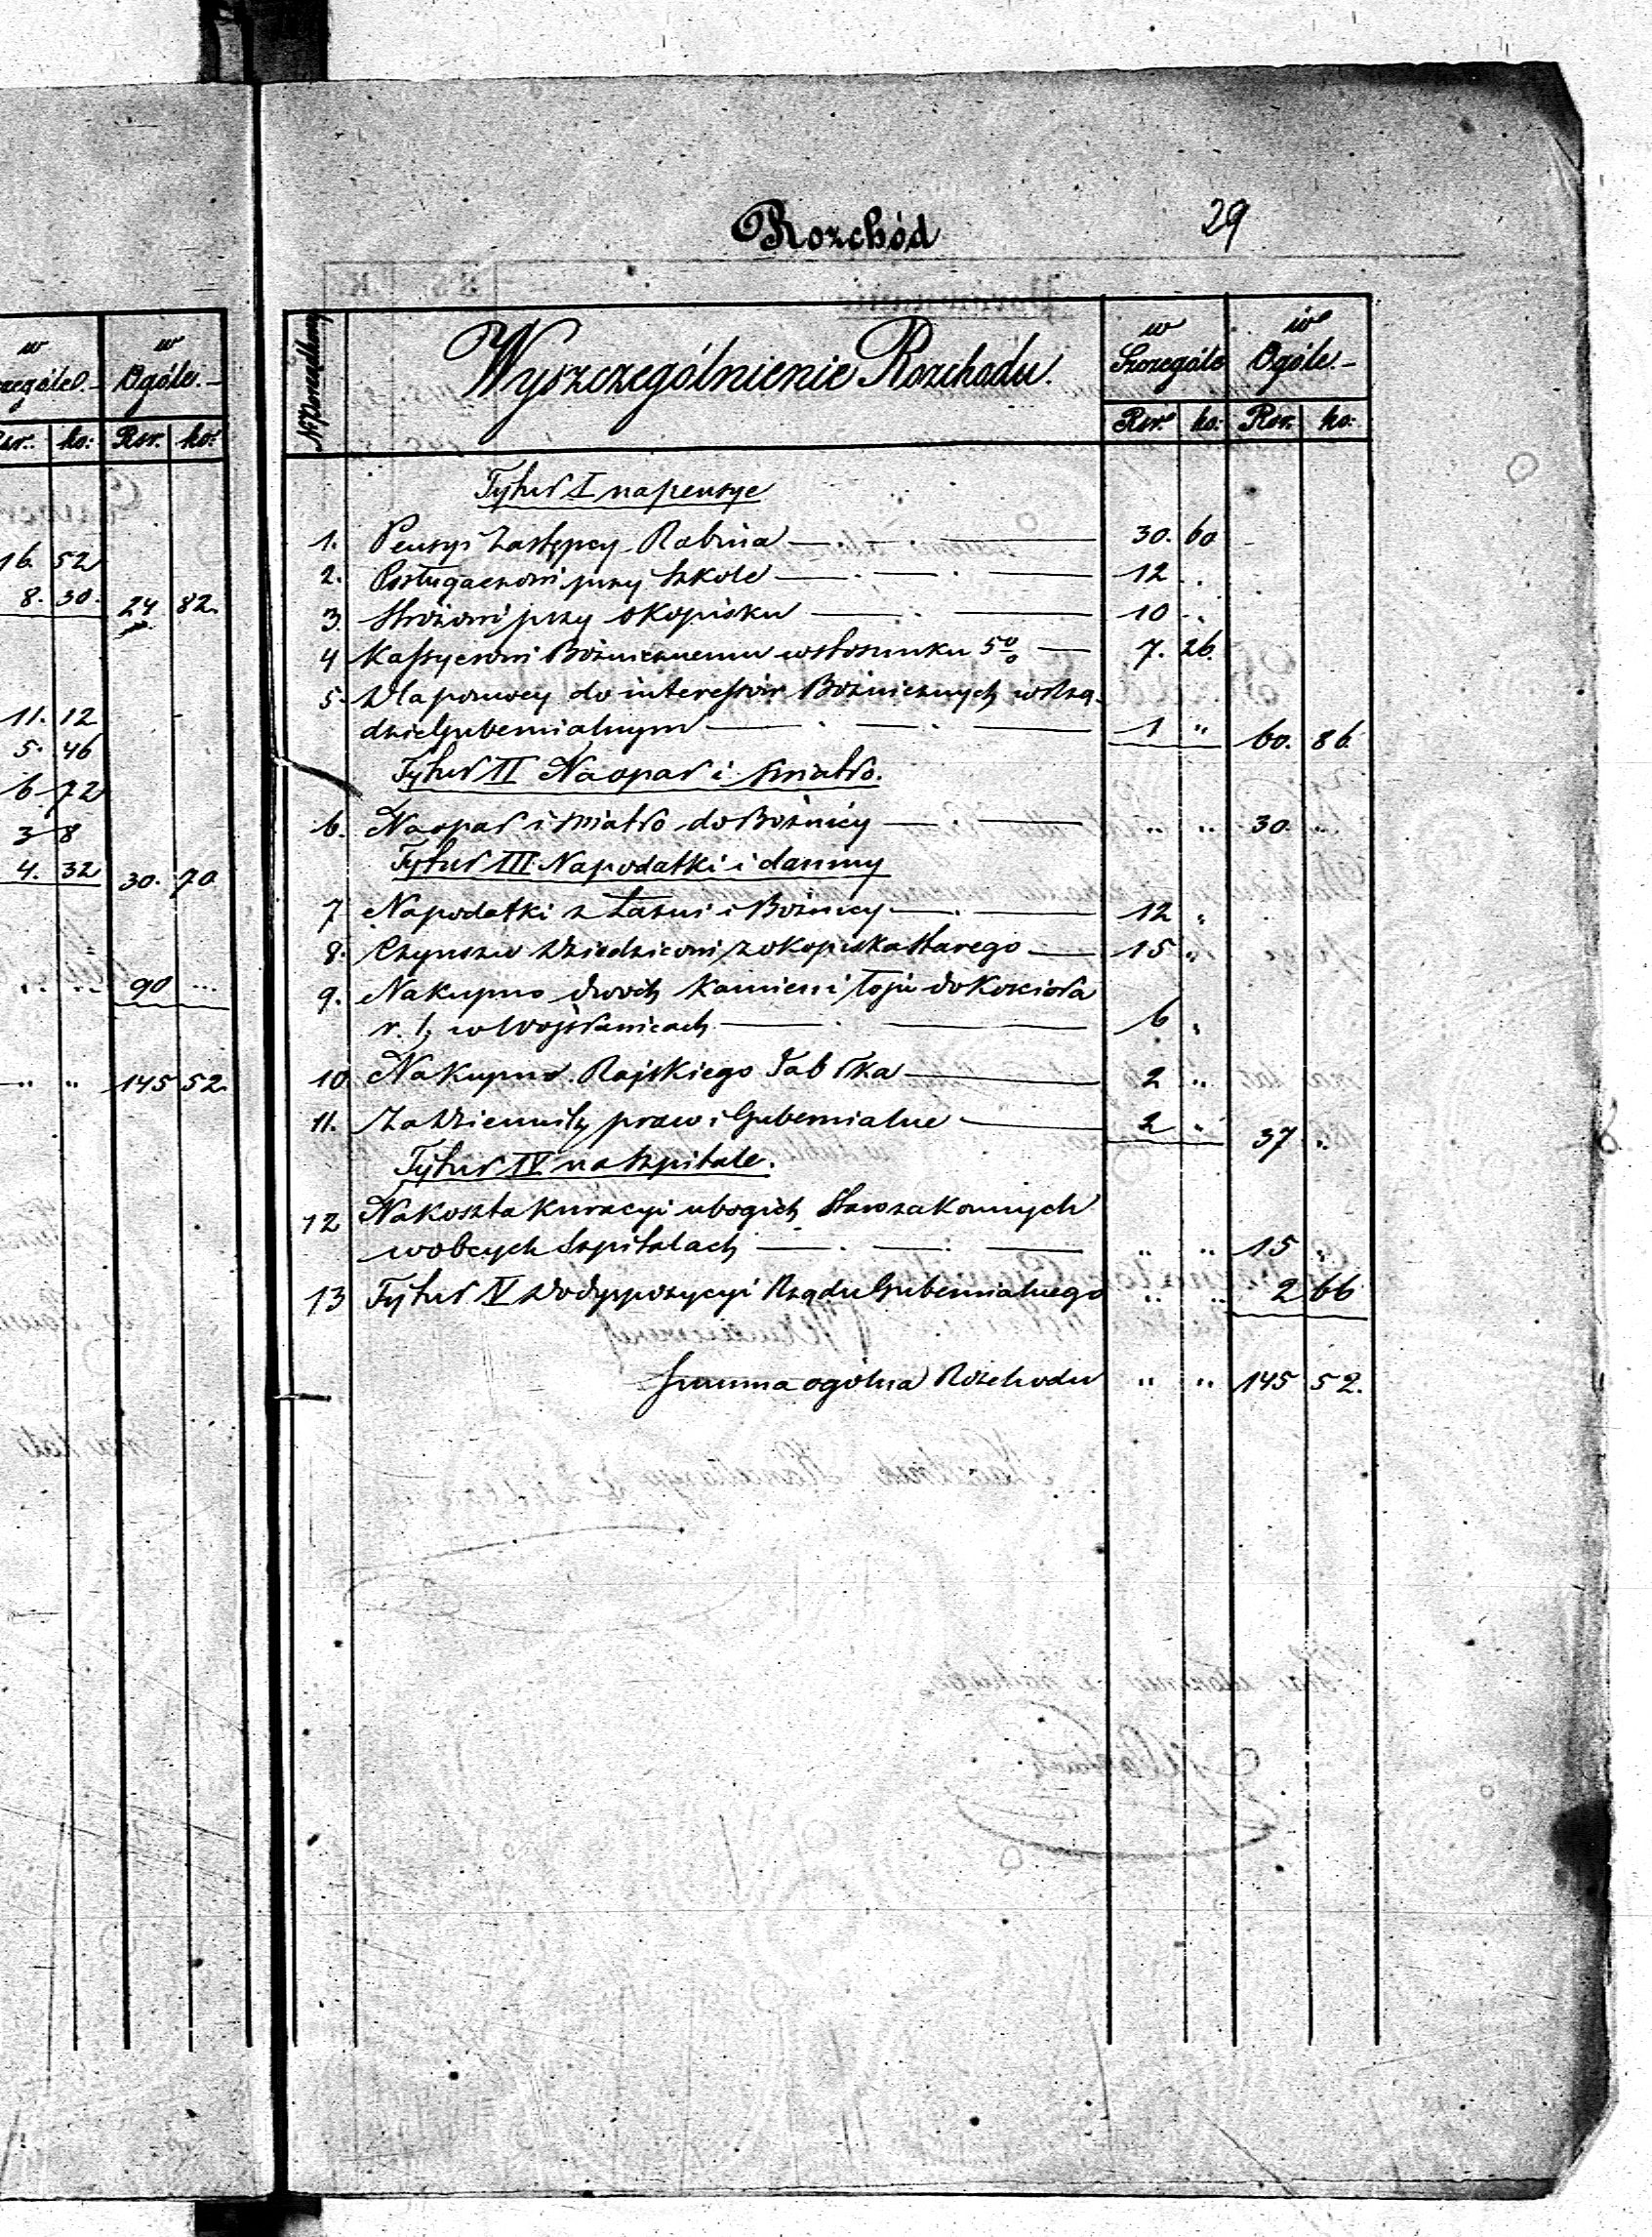 w w
Ogóle.
ko: Rsr. ko:
16. 52
8. 30. 24 82.
11. 12
5. 46
6 72
3 8
4. 32 30. 70
90 ...
" " 145 52.
29
Rozchód
Wyszczególnienie Rozchodu.
w Szczególe w Ogóle.
Rsr. ko: Rsr. ko:
Tytuł I na pensye
1. Pensya Zastępcy Rabina 30. 60
2. Posługaczowi przy Szkole 12 "
3. Stróżowi przy okopisku 10 "
4 Kassyerowi Bożnicznemu w stosunku 5% 7. 26.
5. Dla pomocy do interessów Bożnicznych w Rzą-
dzie Gubernialnym 1 " 60. 86
Tytuł II Na opał i światło.
6. Na opał i światło do Bożnicy " " 30. "
Tytuł III Na podatki i daniny
7 Na podatki z Łaźni i Bożnicy 12 "
8. Czynszu Dziedzicowi z okopiska starego 15 "
9. Na kupno dwóch kamieni łoju do Kościoła
r. l. w Wojsławicach 6 "
10 Na kupno Rajskiego Jabłka 2 "
11. Za Dzienniki praw i Gubernialne 2 " 37 "
Tytuł IV na szpitale.
12 Na koszta kuracyi ubogich Starozakonnych
w obcych Szpitalach " " 15 "
13 Tytuł V Do dyspozycyi Rządu Gubernialnego " " 2 66
Summa ogólna Rozchodu " " 145 52.